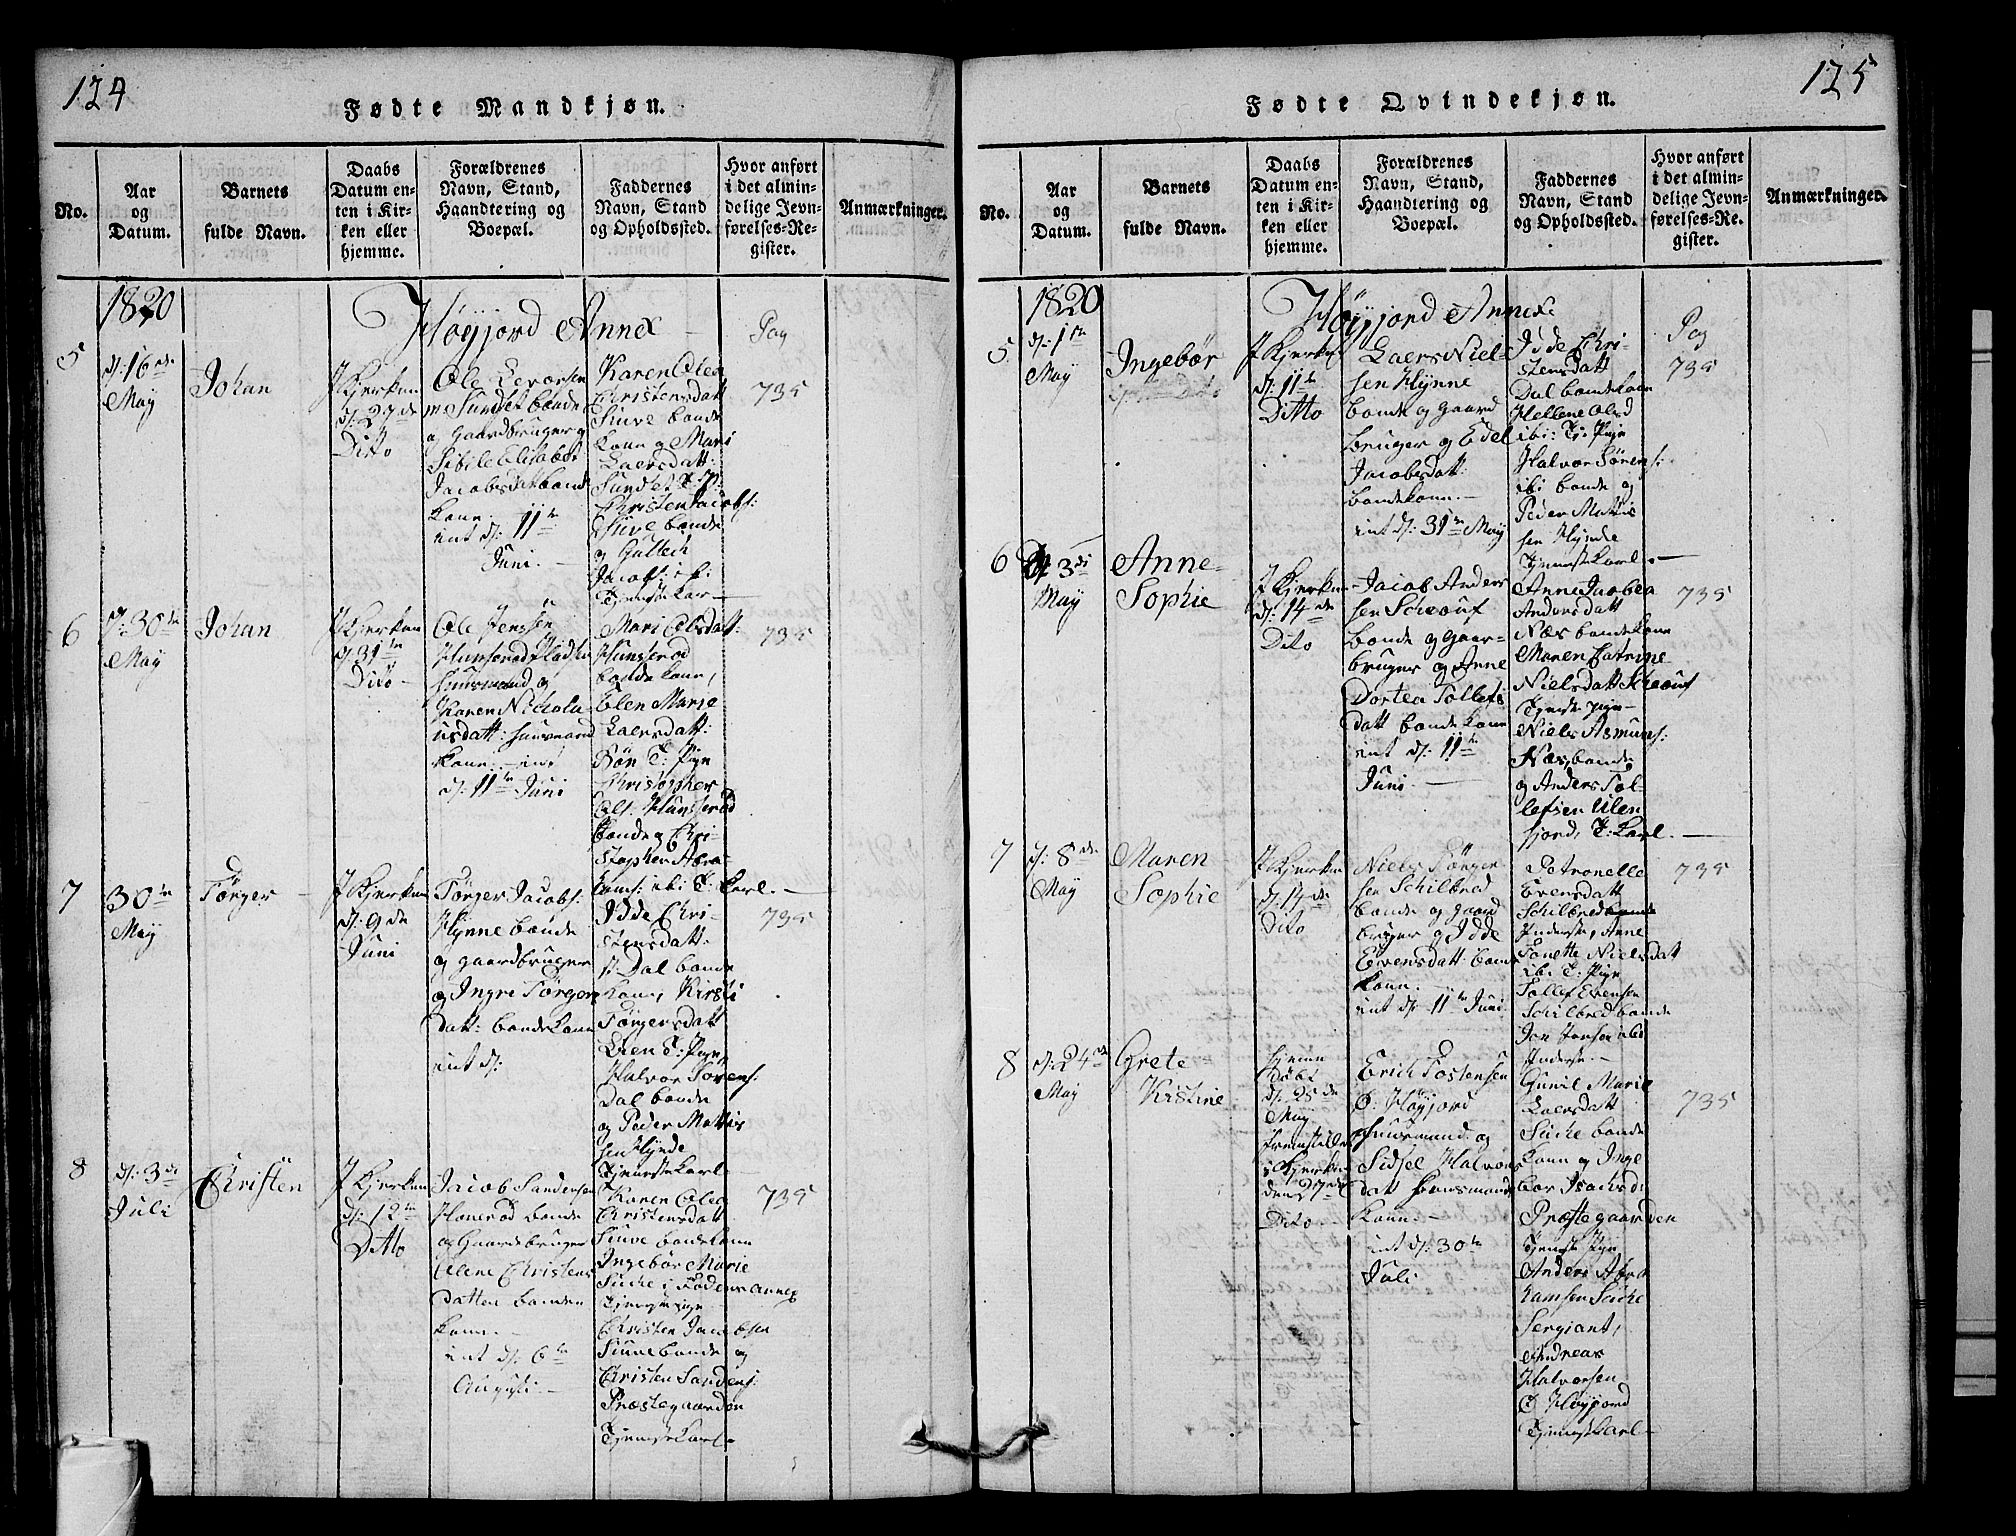 124
Fødte Mandkjøn.
No.
Aar
og
Datum.
Barnets
fulde Navn.
Daabs
Datum en-
ten i Kir-
ken eller
hjemme.
Forældrenes
Navn, Stand,
Haandtering og
Boepæl.
Faddernes
Navn, Stand
og Opholdssted.
Hvor anført
i det almin-
delige Jevn-
førelses-Re-
gister.
Anmærkninger.
1820
Høyjord Annex
Pag
5
d: 16de
May
Johan
J Kjerken
d: 27de
Ditto
Ole
Sundset bonde
og Gaardbruger og
Sibile Elisabet
Jacobsdat bonde
kone.
int d: 11te
Juni.
Karen Olea
Christensdatt
Siuve bonde
kone og Mari
Laersdatt:
Sundset
Christen Jacobs:
Siuve bonde
og Gullech
Jacobs: ibi:
Tjenestekar
735
6
d: 30te
May
Johan
J Kjerken
d: 31te
Dito
Ole Jenssen
Hunserød
huusmand og
Karen Nichola-
usdatt: huusmand
kone. int
d: 11te Juni
Mari Olsdatt:
Hunserød
bonde kone,
Elen Marie
Laersdatt:
Bøn T: Pige
Christopher
Ols: Hunserød
bonde og Chri-
stopher Abra-
hams: ibi: T: karl.
735
7
30te
May
Törger
J Kjerken
d: 9de
Juni
Törger Jacobs:
Hynne bonde
og gaardbruger
og Ingri Törgers
datt: bondekone
int d:
Idde Chri-
stensdatt:
Dal bonde
kone, Kirsti
Törgersdatt
Lien T: Pige
Halvor Sorens:
Dal bonde
og Peder Mattis
sen Hynde
Tjenestekarl
735
8
d: 3de
Juli
Christen
J Kjerken
d: 12te
Ditto
Jacob Sandersen
Honerød bonde
og Gaardebruger
Olene Christens
datter bonden
kone.
int d: 6te
Augusti.
Karen Olea
Christensdatt
Siuve bondekone
Ingebör Marie
Suche i Fødens annex
Christen Jacobsen
Siuve bonde og
Christen Sanders:
Præstegaarden
Tjenestekarl.
735
125
Fødte Qvindekjøn.
No.
Aar
og
Datum.
Barnets
fulde Navn.
Daabs
Datum en-
ten i Kir-
ken eller
hjemme.
Forældrenes
Navn, Stand,
Haandtering og
Boepæl.
Faddernes
Navn, Stand
og Opholdssted.
Hvor anført
i det almin-
delige Jevn-
førelses-Re-
gister.
Anmærkninger.
1820
Høyjord Annex
Pag
5
d: 1te
May
Ingebör
J Kjerken
d: 11te
Ditto
Laers Niel-
sen Hynne
bonde og Gaard
bruger og Edel
Jacobsdatt:
bondekone.
int d: 31te May
Idde Chri-
stensdatt
Dal bondekone
Hellene Olsd
ibi: Tj: Pige
Halvor Sörens:
ibi bonde og
Peder Mattis
sen Hynde
Tjenestekarl.
735
6
3de
May
Anne
Sophie
J Kjerken
d: 14de
Dito
Jacob Anders
sen Scheouf
bonde og gaar-
bruger og Anne
Dortea Tollefs
datt bondekone
int d: 11te
Juni
Anne Jacobea
Andersdatt
Næs bondekone
Maren Catrine
Nielsdatt Scheouf
Tjeneste Pige
Niels Asmuns:
Næs, bonde
og Anders Tol-
lefsen Ulen
fjord, T: Karl.
735
7
d: 8de
May
Maren
Sophie
J Kjerken
d: 14de
Dito
Niels Törger
sen Schilbred
bonde og gaard
bruger og Idde
Evensdatt: bonde
kone.
int d: 11te Juni
Petronelle
Evensdatt
Schilbred bonde
Inderste, Anne
Tonette Nielsdat
ibi T: Pige
Tollef Evensen
Schilbred bonde
Jon Jonsen ibi
Inderste.
735
8
d: 24de
May
Grete
Kistine
hjemme
Døbt
d: 25de
May
fremstilled
i Kjerken
den 27de
Dito
Erich Tostensen
Ø. Høyjord
huusmand og
Sidsel Halvors
dat huusmands
kone.
int d: 30te
Juli
Gunil Marie
Laersdatt
Suche bonde
kone og Inge
bor Isachsd:
Præstegaarden
Tjeneste Pige
Anders Abra
hamsen Suche
Sergiant,
Andreas
Halvorsen
Ø Høyjord
Tjenestekarl
735